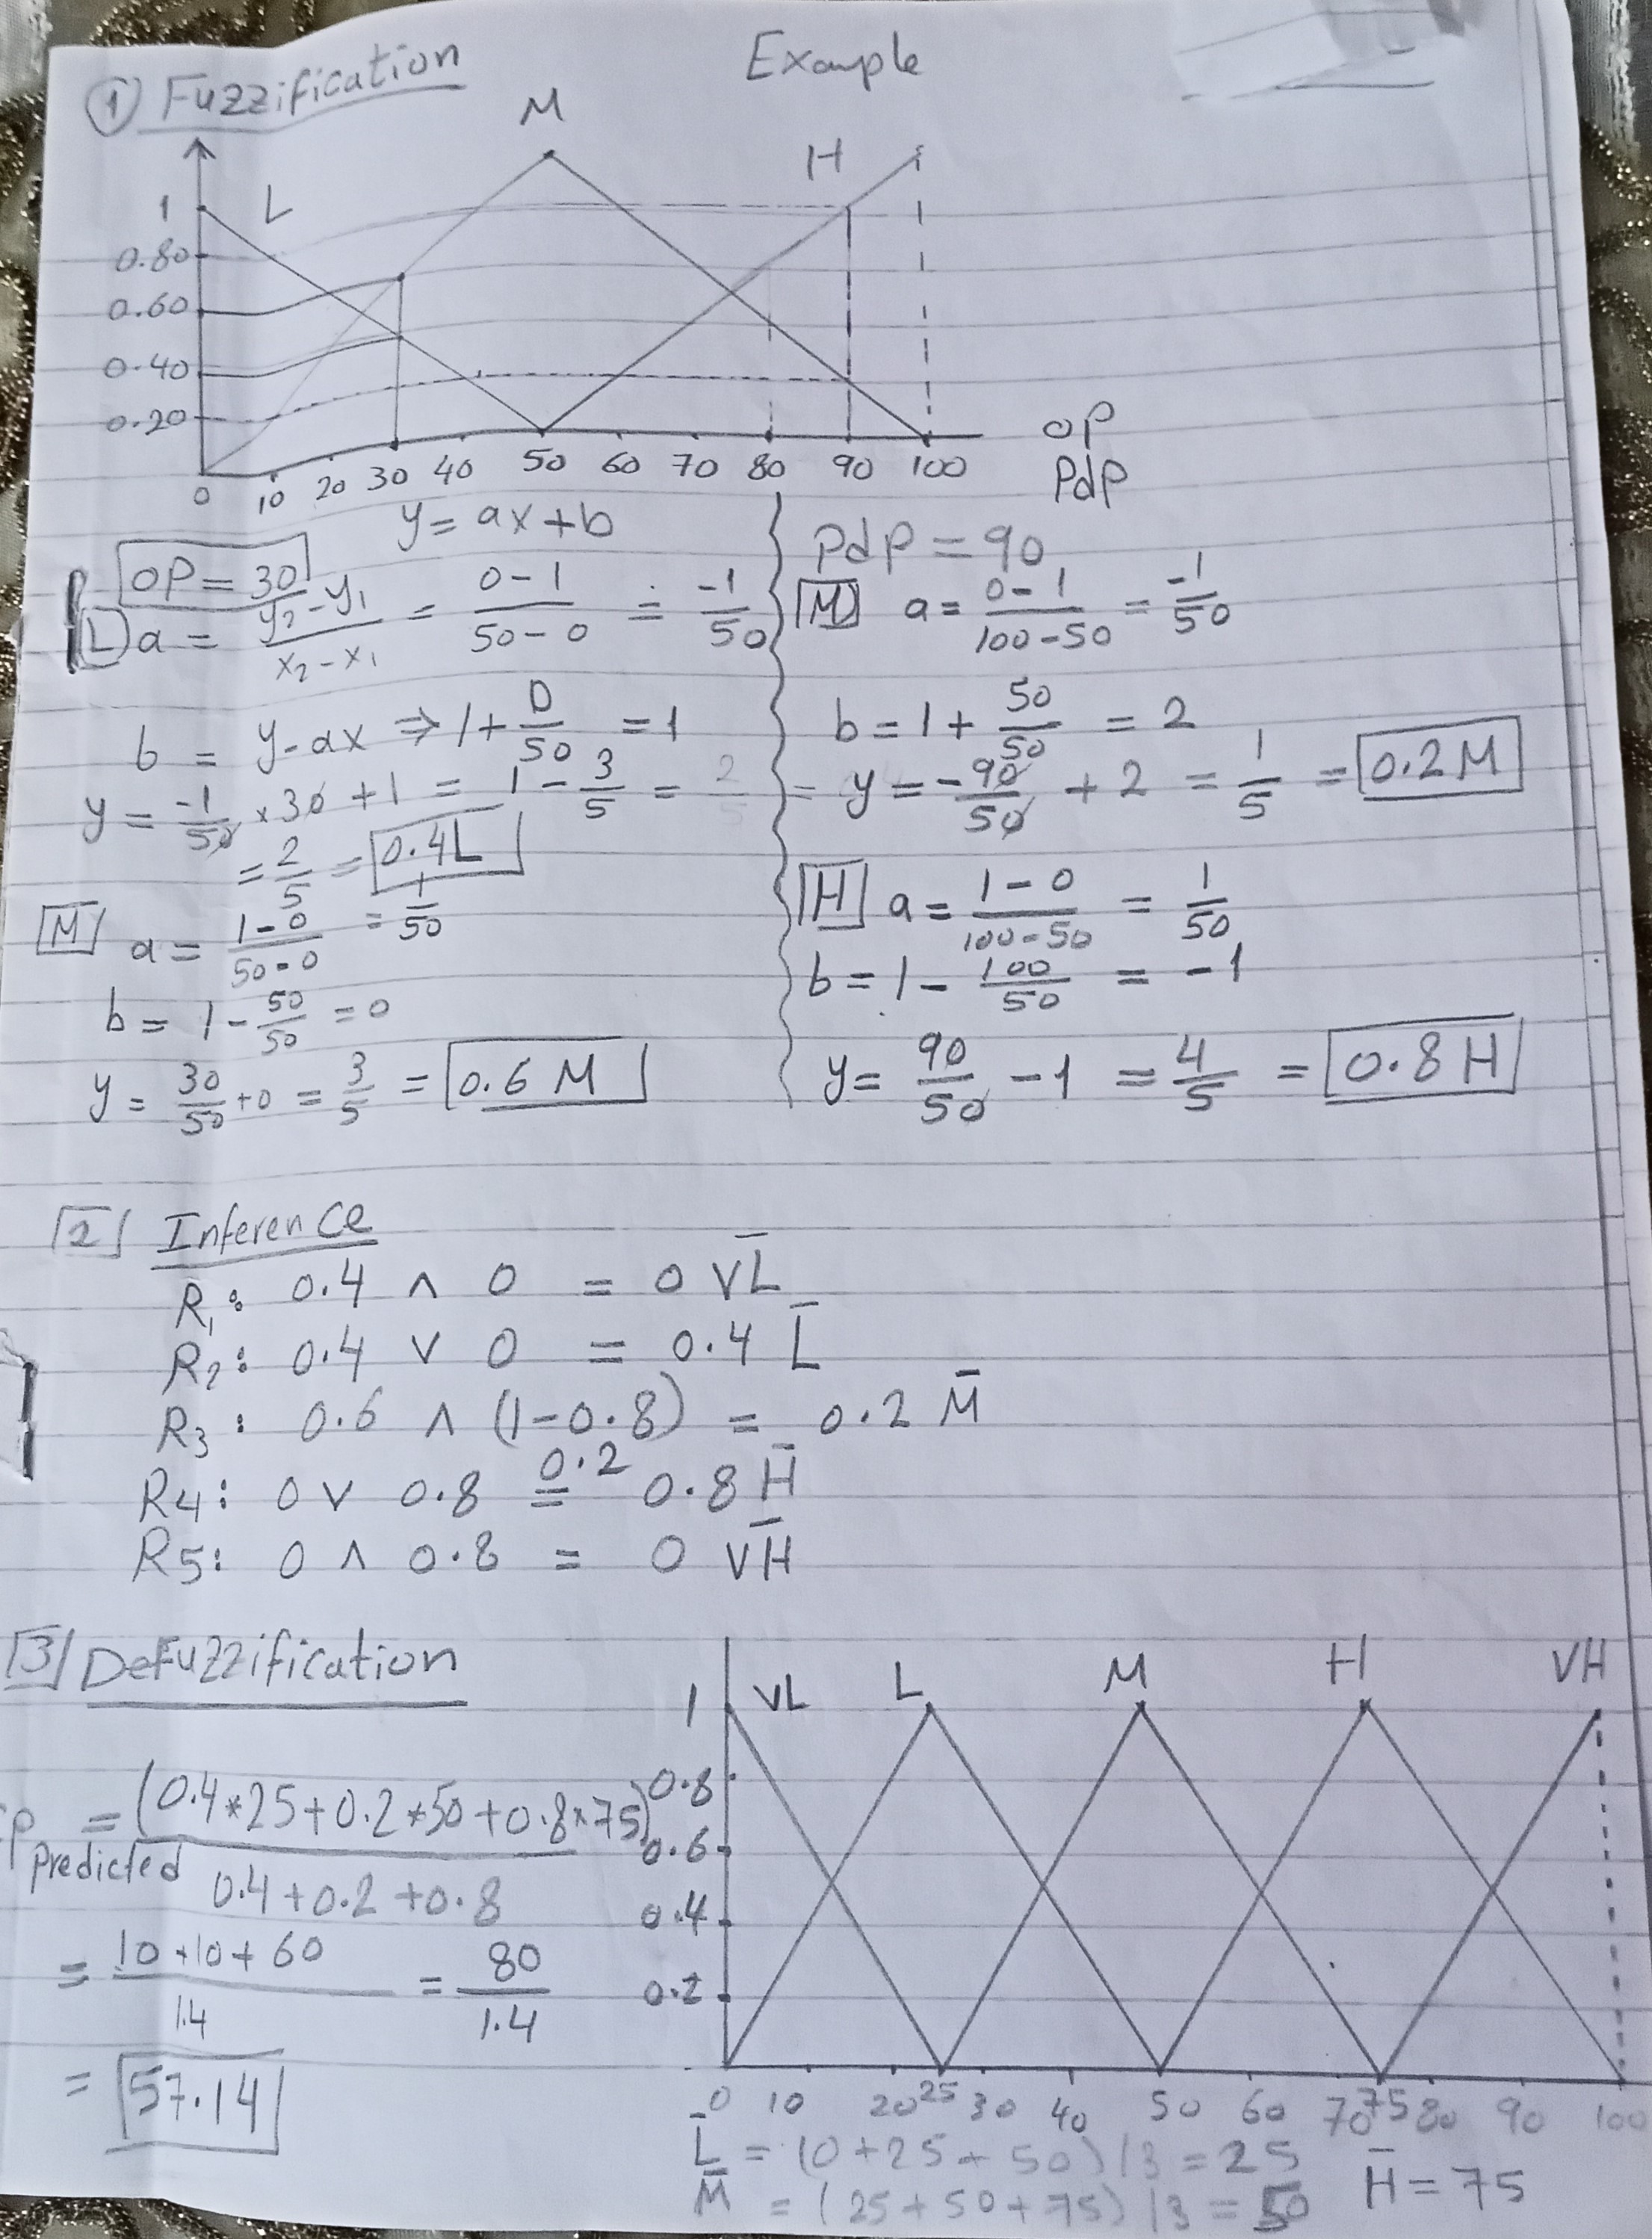 Example
① Fuzzification
M
H
L
1
0.80
0.60
0.40
0.20
0 10 20 30 40 50 60 70 80 90 100
OP
PdP
y = ax + b
OP = 30
L a = y₂-y₁ / x₂-x₁ = 0-1 / 50-0 = -1/50
b = y-ax ⇒ 1 + 0/50 = 1
y = -1/50 × 30 + 1 = 1 - 3/5 = 2/5
= 2/5 = 0.4L
M a = 1-0 / 50-0 = 1/50
b = 1 - 50/50 = 0
y = 30/50 + 0 = 3/5 = 0.6 M
PdP = 90
M a = 0-1 / 100-50 = -1/50
b = 1 + 50/50 = 2
= y = -90/50 + 2 = 1/5 = 0.2M
H a = 1-0 / 100-50 = 1/50
b = 1 - 100/50 = -1
y = 90/50 - 1 = 4/5 = 0.8 H
2 Inference
R₁: 0.4 ∧ 0 = 0 V̅L̅
R₂: 0.4 ∨ 0 = 0.4 L̅
R₃: 0.6 ∧ (1-0.8) = 0.2 M̅
0.2
R4: 0 ∨ 0.8 = 0.8 H̅
R5: 0 ∧ 0.8 = 0 V̅H̅
3 Defuzzification
predicted = (0.4*25+0.2*50+0.8*75) / 0.4+0.2+0.8
= 10+10+60 / 1.4 = 80 / 1.4
= 57.14
VL L M H VH
1
0.8
0.6
0.4
0.2
0 10 20 25 30 40 50 60 70 75 80 90 100
L̅ = (0+25+50)/3 = 25
M̅ = (25+50+75)/3 = 50
H̅ = 75